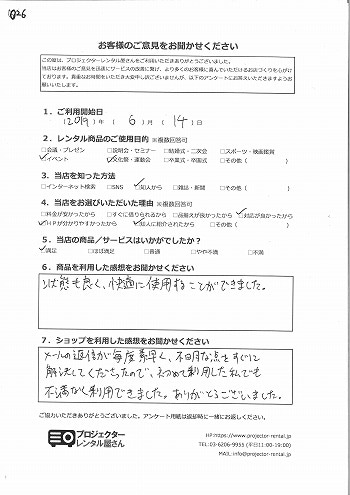 1026
お客様のご意見をお聞かせください
この度は、プロジェクターレンタル屋さんをご利用いただきありがとうございました。
当店はお客様のご意見を迅速にサービスの改善に繋げ、より多くのお客様に喜んでいただけるお店づくりを心がけ
ております。貴重なお時間をいただき大変申し訳ございませんが、以下のアンケートにお答えいただきますようお
願いいたします。
1．ご利用開始日
（2019）年（ 6 ）月（ 14 ）日
2．レンタル商品のご使用目的 ※複数回答可
□会議・プレゼン □説明会・セミナー □結婚式・二次会 □スポーツ・映画鑑賞
☑イベント ☑文化祭・運動会 □卒業式・卒園式 □その他（ ）
3．当店を知った方法
□インターネット検索 □SNS ☑知人から □雑誌・新聞 □その他（ ）
4．当店をお選びいただいた理由 ※複数回答可
□料金が安かったから □すぐに借りられるから □品揃えが良かったから ☑対応が良かったから
☑HPが分かりやすかったから ☑知人に紹介されたから □その他（ ）
5．当店の商品／サービスはいかがでしたか？
☑満足 □ほぼ満足 □普通 □やや不満 □不満
6．商品を利用した感想をお聞かせください
状態も良く、快適に使用することができました。
7．ショップを利用した感想をお聞かせください
メールの返信が毎度素早く、不明な点をすぐに
解決してくださったので、初めて利用した私でも
不満なく利用できました。ありがとうございました。
ご協力いただきありがとうございました。アンケート用紙は返却時に一緒にお返しください。
プロジェクター
レンタル屋さん
HP:https://www.projector-rental.jp
TEL:03-6206-9955 (平日11:00-19:00)
MAIL:info@projector-rental.jp